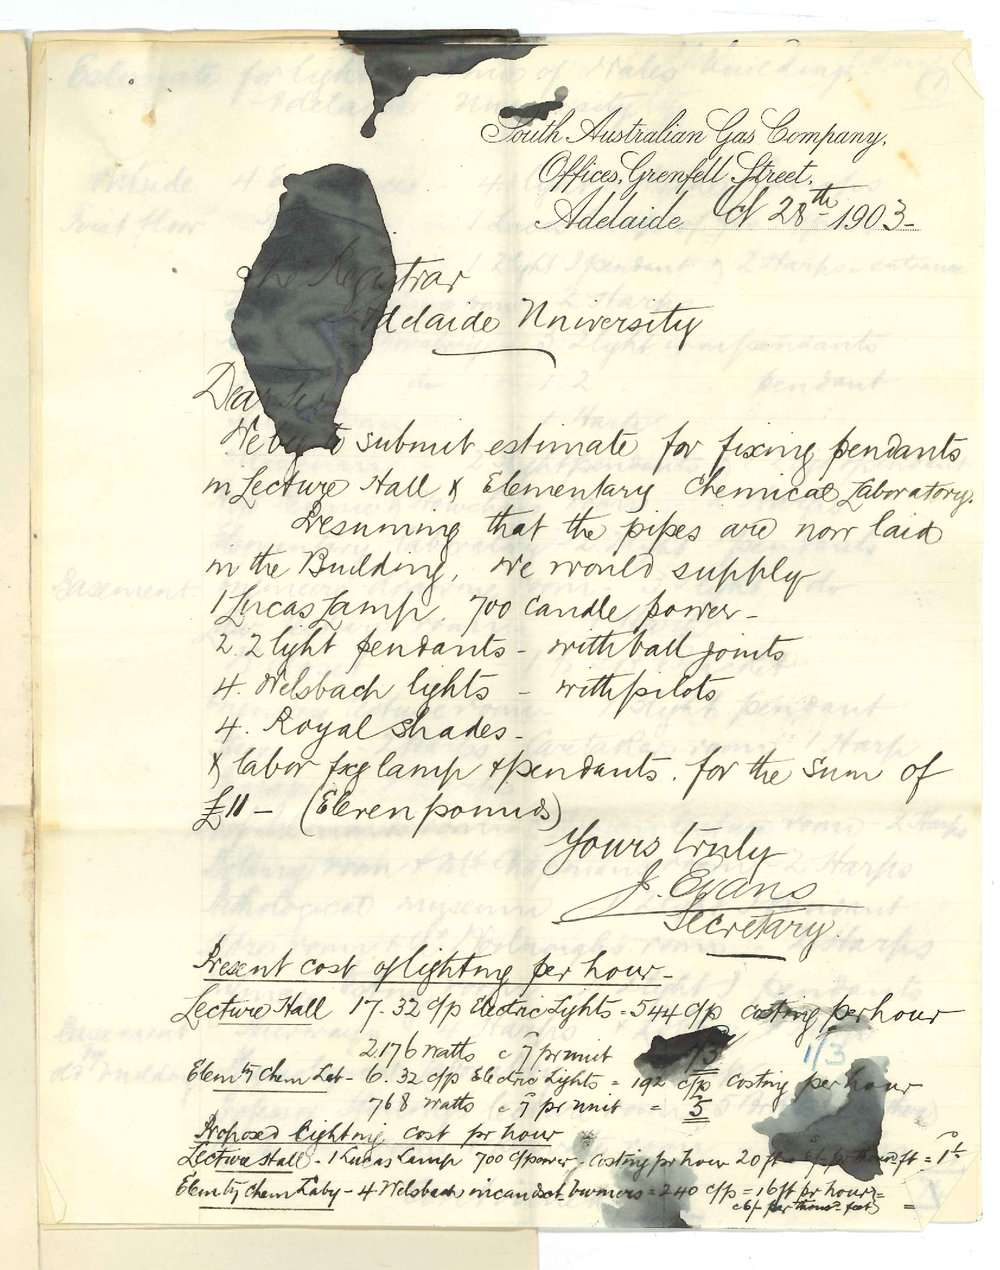 South Australian Gas Company,
Offices, Grenfell Street,
Adelaide Oct 28th 1903
The Registrar
Adelaide University
Dear Sir
We beg to submit estimate for fixing pendants
in Lecture Hall & Elementary Chemical Laboratory.
Presuming that the pipes are now laid
in the Building, we would supply
1 Lucas Lamp 700 candle power -
2. 2 light pendants - with ball joints
4. Welsbach lights - with pilots
4. Royal shades -
& labor fxg lamp & pendants. for the sum of
£11 - (Eleven pounds)
Yours truly
J. Evans
Secretary.
Present cost of lighting per hour -
Lecture Hall 17. 32 c/p Electric Lights = 544 c/p costing per hour
2176 watts c 7 pr unit 1/3
Elemty Chem Lab - 6. 32 c/p Electric Lights = 192 c/p costing per hour
768 watts c 7 pr unit = 5
Proposed lighting cost pr hour
Lecture Hall - 1 Lucas Lamp 700 c/power - costing pr hour 20 ft
Elemty Chem Laby - 4 Welsbach incandesct burners = 240 c/p = 16 ft pr hour =
c 6/- per thousd feet)